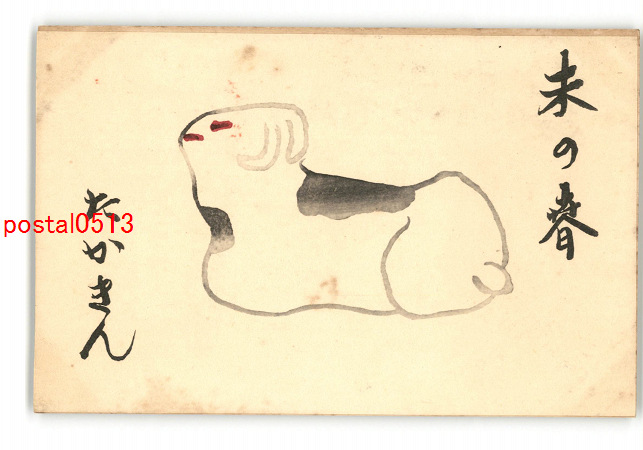 未の春
たかきん
postal0513